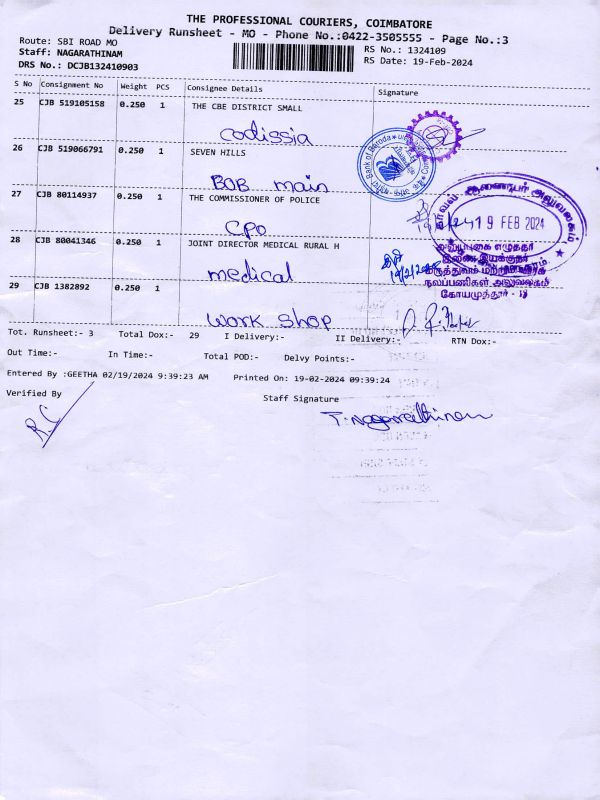 THE PROFESSIONAL COURIERS, COIMBATORE
Delivery Runsheet - MO - Phone No.:0422-3505555 - Page No.:3
Route: SBI ROAD MO
Staff: NAGARATHINAM
DRS No.: DCJB132410903
RS No.: 1324109
RS Date: 19-Feb-2024
S No Consignment No Weight PCS Consignee Details Signature
25 CJB 519105158 0.250 1 THE CBE DISTRICT SMALL
codissia
26 CJB 519066791 0.250 1 SEVEN HILLS
Bank of Baroda
BOB main
27 CJB 80114937 0.250 1 THE COMMISSIONER OF POLICE
CPO
19 FEB 2024
28 CJB 80041346 0.250 1 JOINT DIRECTOR MEDICAL RURAL H
medical
இணை இயக்குநர்
நலப்பணிகள் அலுவலகம்
கோயமுத்தூர் - 18
29 CJB 1382892 0.250 1
work shop
Tot. Runsheet:- 3 Total Dox:- 29 I Delivery:- II Delivery:- RTN Dox:-
Out Time:- In Time:- Total POD:- Delvy Points:-
Entered By :GEETHA 02/19/2024 9:39:23 AM Printed On: 19-02-2024 09:39:24
Verified By Staff Signature
T. Nagarathinam